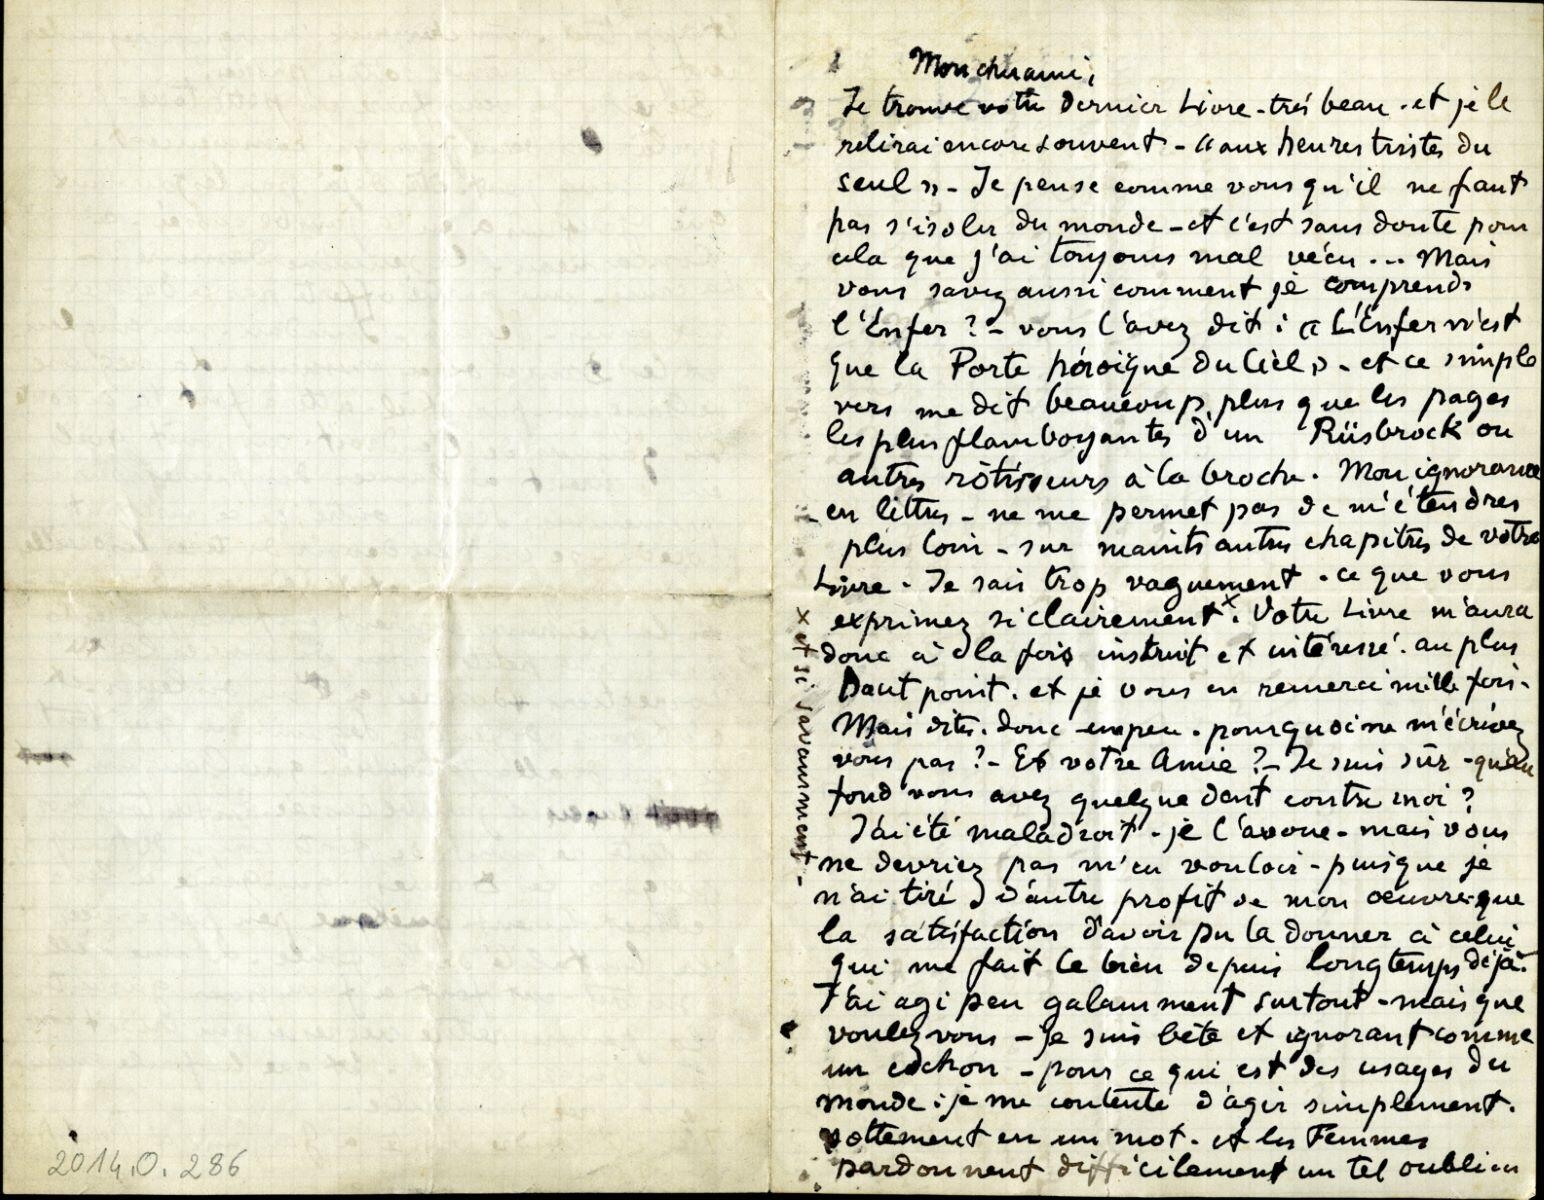 Mon cher ami,
Je trouve votre Dernier Livre - trés beau - et je le
relirai encore souvent - « aux heures tristes du
seul » - Je pense comme vous qu'il ne faut
pas s'isoler du monde - et c'est sans doute pour
cela que j'ai toujours mal vécu ... Mais
vous savez aussi comment je comprends
l'Énfer ? - vous l'avez dit : « L'Énfer n'est
que la Porte héroïque du Ciel » - et ce simple
vers me dit beaucoup plus que les pages
les plus flamboyantes d'un Rüsbrock ou
autres rôtisseurs à la broche. Mon ignorance
en lettres - ne me permet pas de m'étendres
plus loin - sur maints autres chapitres de votre
Livre - Je sais trop vaguement - ce que vous
exprimez si clairement x. Votre Livre m'aura
donc à la fois instruit et intéressé - au plus
haut point. et je vous en remerci mille fois -
Mais dites - donc - un peu - pourquoi ne m'écrivez
vous pas ? - Et votre Amie ? - Je suis sûr - qu'au
fond vous avez quelque dent contre moi ?
J'ai été maladroit - je l'avoue - mais vous
ne devriez pas m'en vouloir - puisque je
n'ai tiré d'autre profit de mon oeuvre - que
la satisfaction d'avoir pu la donner à celui
qui me fait le bien depuis longtemps déjà.
J'ai agi peu galamment surtout - mais que
voulez vous - je suis bête et ignorant comme
un cochon - pour ce qui est des usages du
monde : je me contente d'agir simplement.
sottement en un mot - et les Femmes
pardonnent difficilement un tel oubli en
x et si savamment -
2014.0.286